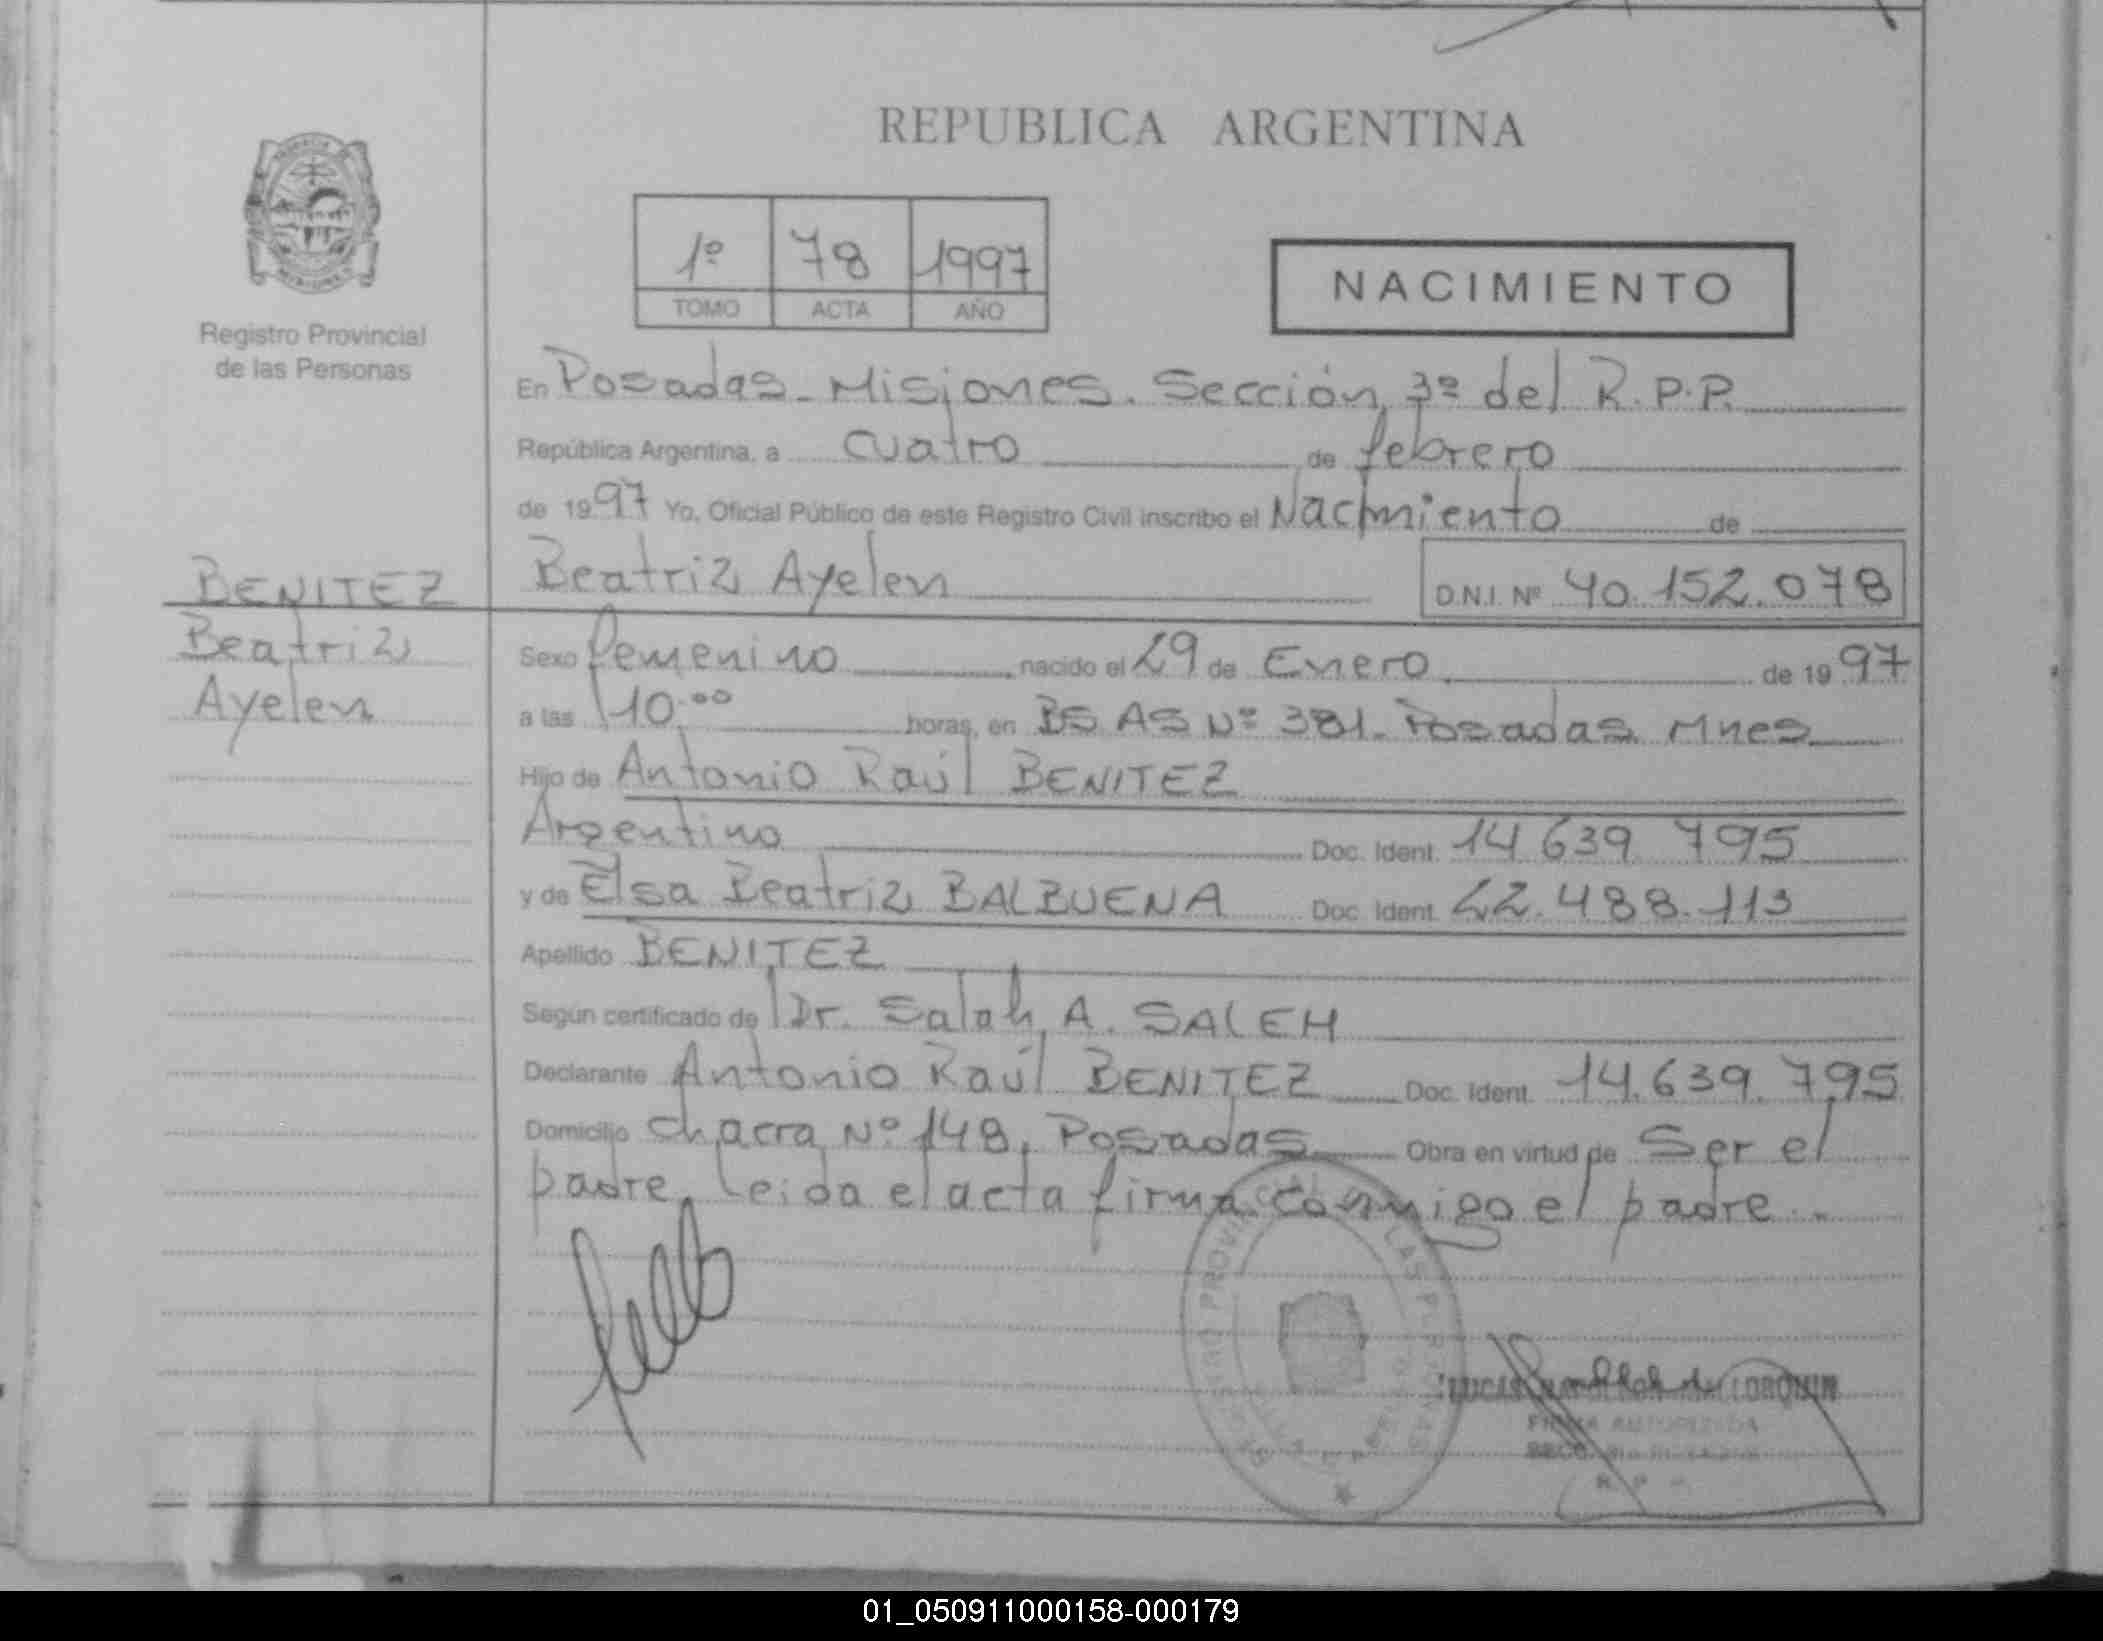 REPUBLICA ARGENTINA
1º 78 1997
TOMO ACTA AÑO
NACIMIENTO
Registro Provincial
de las Personas
En Posadas - Misiones. Sección 3ª del R.P.P.
República Argentina, a cuatro de febrero
de 1997 Yo, Oficial Público de este Registro Civil inscribo el Nacimiento de
Beatriz Ayelen D.N.I. Nº 40.152.078
BENITEZ
Beatriz
Ayelen
Sexo femenino nacido el 29 de Enero de 1997
a las 10.00 horas, en BS AS Nº 381. Posadas Mnes
Hijo de Antonio Raúl BENITEZ
Argentino Doc. Ident. 14 639 795
y de Elsa Beatriz BALBUENA Doc. Ident. 22.488.113
Apellido BENITEZ
Según certificado de Dr. Salah A. SALEH
Declarante Antonio Raúl BENITEZ Doc. Ident. 14.639.795
Domicilio Chacra Nº 148, Posadas Obra en virtud de Ser el
padre. Leida el acta firma conmigo el padre.
FIRMA AUTORIZADA
01_050911000158-000179